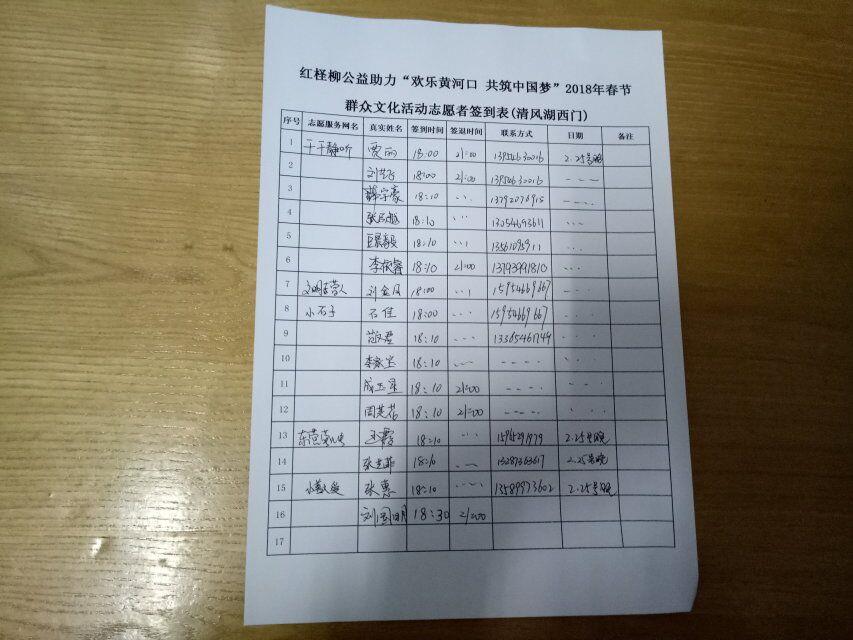 红柽柳公益助力“欢乐黄河口 共筑中国梦”2018年春节
群众文化活动志愿者签到表(清风湖西门)
序号 志愿服务网名 真实姓名 签到时间 签退时间 联系方式 日期 备注
1 干干静听 贾丽 18:00 21:00 13954630016 2.25号晚
2 18:00 21:00 13954630016 ---
3 薛宇豪 18:10 ... 13792076915 ----
4 18:10 ... 13054693611 ...
5 18:10 ... 13561095911 ...
6 21:00 13793991810 ...
7 刘金凤 18:00 ... 15954669667 ...
8 小石子 石佳 18:00 ... 15954669667 ...
9 18:10 ... 13365461744 ...
10 李家宝 18:10 ... ----
11 成玉星 18:10 21:00 ---- ...
12 周芝花 18:10 21:00 ---- ...
13 王霞 18:10 ... 2.25号晚
14 18:10 ... 13287363617 2.25号晚
15 张惠 18:10 ... 13589973602 2.25号晚
16 刘国明 18:30 21:00
17